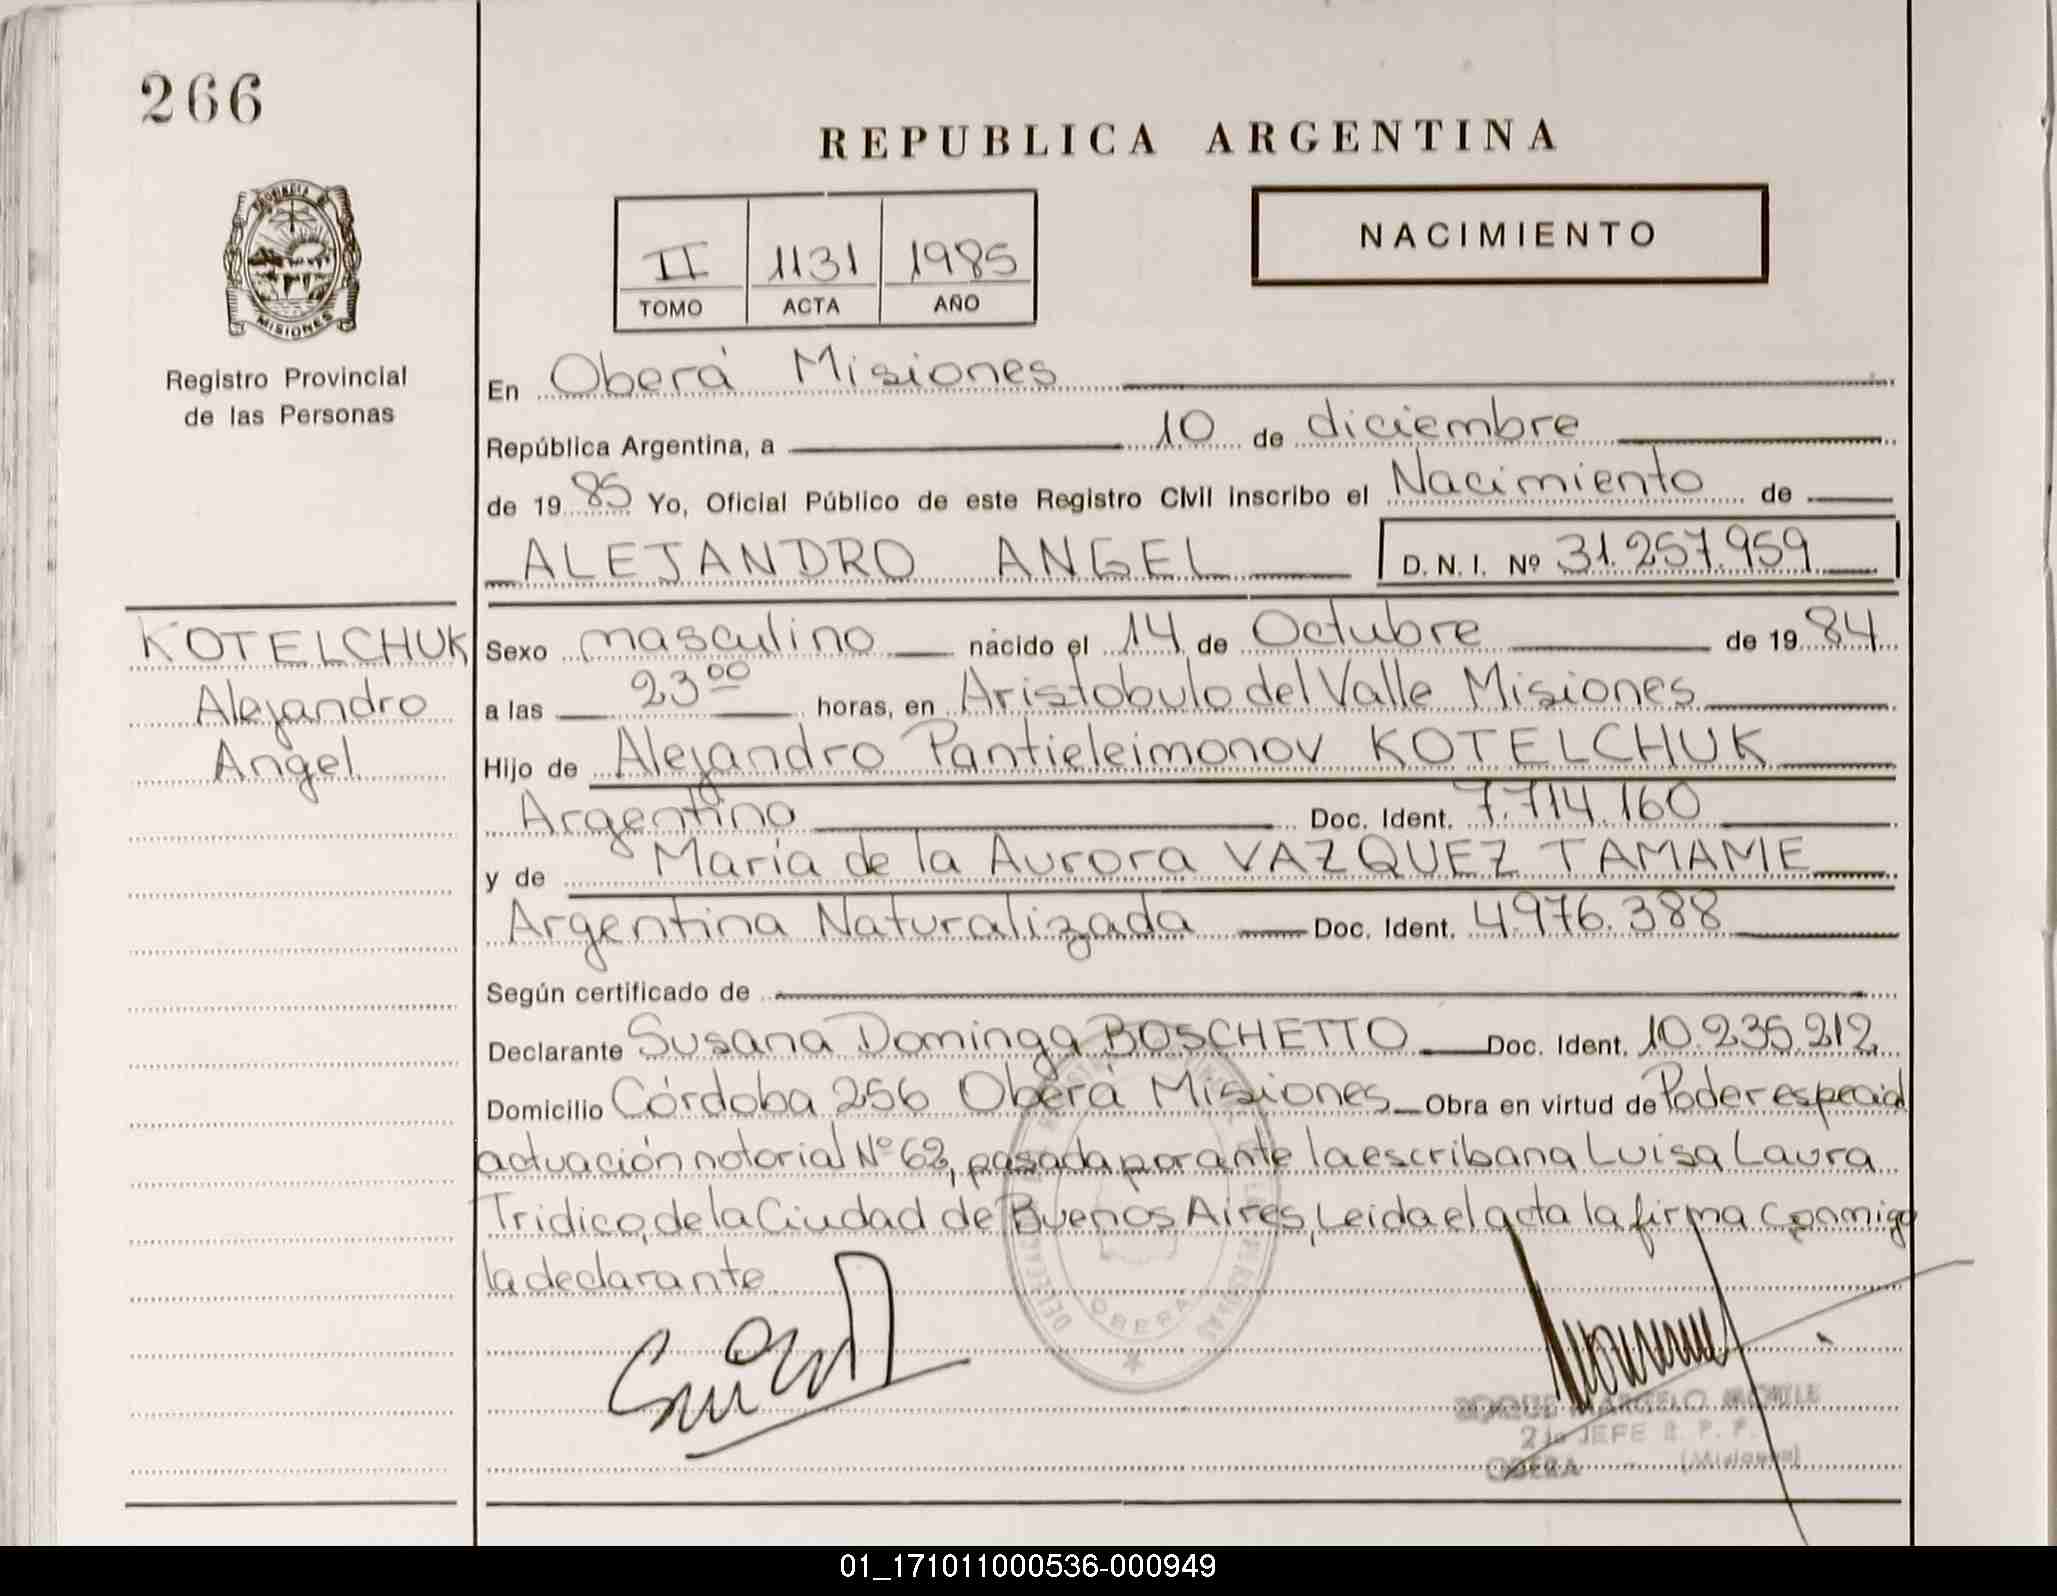 266
REPUBLICA ARGENTINA
PROVINCIA DE
MISIONES
II 1131 1985
TOMO ACTA AÑO
NACIMIENTO
Registro Provincial
de las Personas
En Oberá Misiones
República Argentina, a 10 de diciembre
de 1985 Yo, Oficial Público de este Registro Civil inscribo el Nacimiento de
ALEJANDRO ANGEL D.N.I. Nº 31.257.959
KOTELCHUK
Alejandro
Angel
Sexo masculino nacido el 14 de Octubre de 1984
a las 23⁰⁰ horas, en Aristobulo del Valle Misiones
Hijo de Alejandro Pantieleimonov KOTELCHUK
Argentino Doc. Ident. 7.714.160
y de María de la Aurora VAZQUEZ TAMAME
Argentina Naturalizada Doc. Ident. 4.976.388
Según certificado de
Declarante Susana Dominga BOSCHETTO Doc. Ident. 10.235.212
Domicilio Córdoba 256 Oberá Misiones Obra en virtud de Poder especial
actuación notorial Nº 62, pasada por ante la escribana Luisa Laura
Tridico, de la Ciudad de Buenos Aires, Leida el acta la firma conmigo
la declarante
OBERA
JEFE R. P. P.
OBERA (Misiones)
01_171011000536-000949